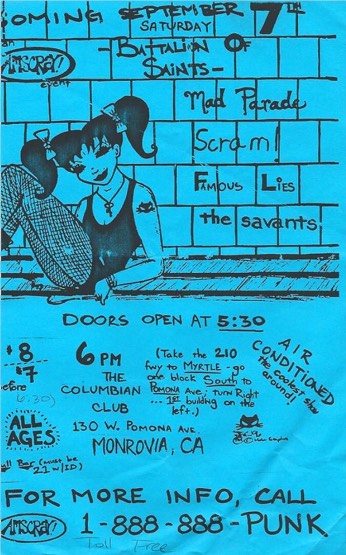 OMING SEPTEMBER 7TH
SATURDAY
an
AMSCRAY!
event
-BATTALION OF
SAINTS-
Mad Parade
Scram!
FAMOUS LIES
the savants
DOORS OPEN AT 5:30
$8
$7
efore
6:30)
6 PM
THE
COLUMBIAN
CLUB
(Take the 210
fwy to MYRTLE - go
one block South to
POMONA AVE; turn Right
... 1st building on the
left.)
AIR
CONDITIONED
the coolest show
around!
ALL
AGES
ll Bar (must be
21 w/ID)
130 W. POMONA AVE.
MONROVIA, CA
FOR MORE INFO, CALL
AMSCRAY!
1-888-888-PUNK
Toll Free